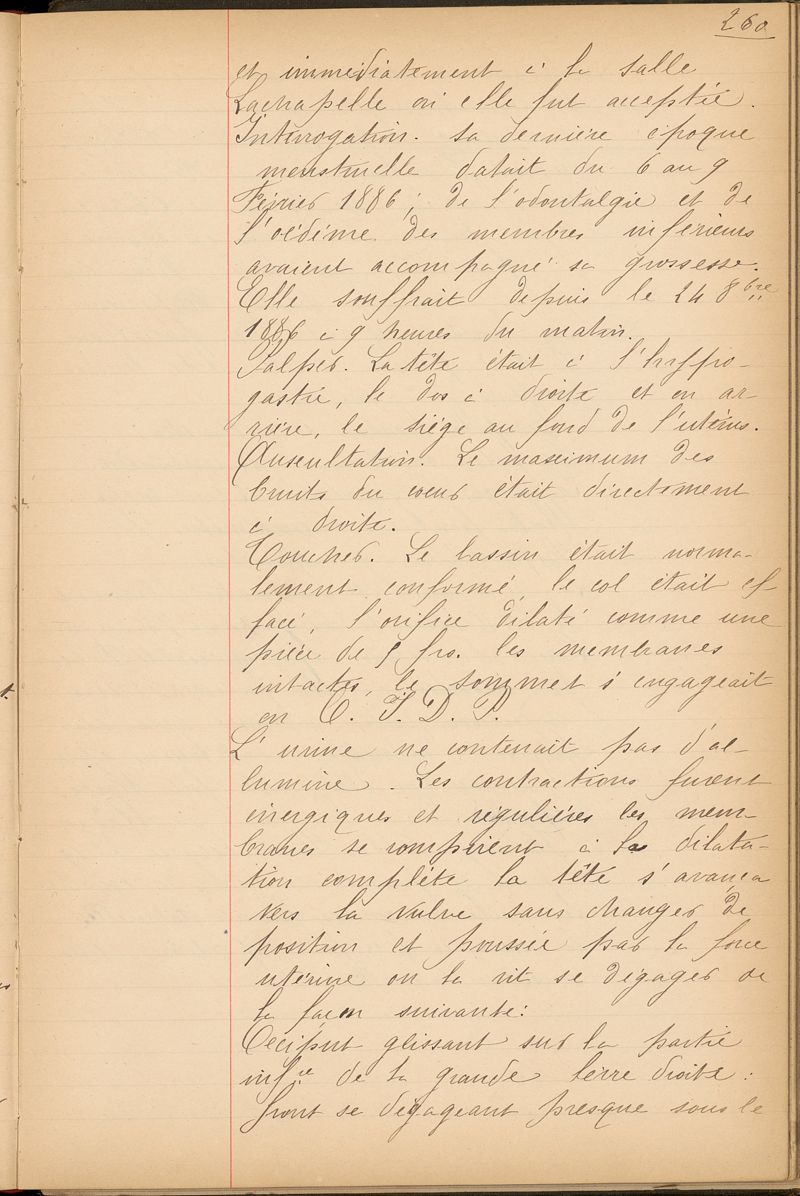 260
et immédiatement à la salle
Lachapelle où elle fut acceptée.
Interrogation. Sa dernière époque
menstruelle datait du 6 au 9
Février 1886 ; de l'odontalgie et de
l'oédème des membres inférieurs
avaient accompagné sa grossesse.
Elle souffrait depuis le 24 8bre
1886 à 9 heures du matin.
Palper. La tête était à l'hypo-
gastre, le dos à droite et en ar-
rière, le siège au fond de l'utérus.
Auscultation. Le maximum des
bruits du coeur était directement
à droite.
Toucher. Le bassin était norma-
lement conformé, le col était ef-
facé, l'orifice dilaté comme une
pièce de 5 frs. les membranes
intactes, le sommet s'engageait
en O. I. D. P.
L'urine ne contenait pas d'al-
bumine. Les contractions furent
énergiques et régulières les mem-
branes se rompirent à la dilata-
tion complète la tête s'avança
vers la vulve sans changer de
position et poussée par la force
utérine on la vit se dégager de
la façon suivante:
Occiput glissant sur la partie
infre de la grande lèvre droite :
front se dégageant presque sous le